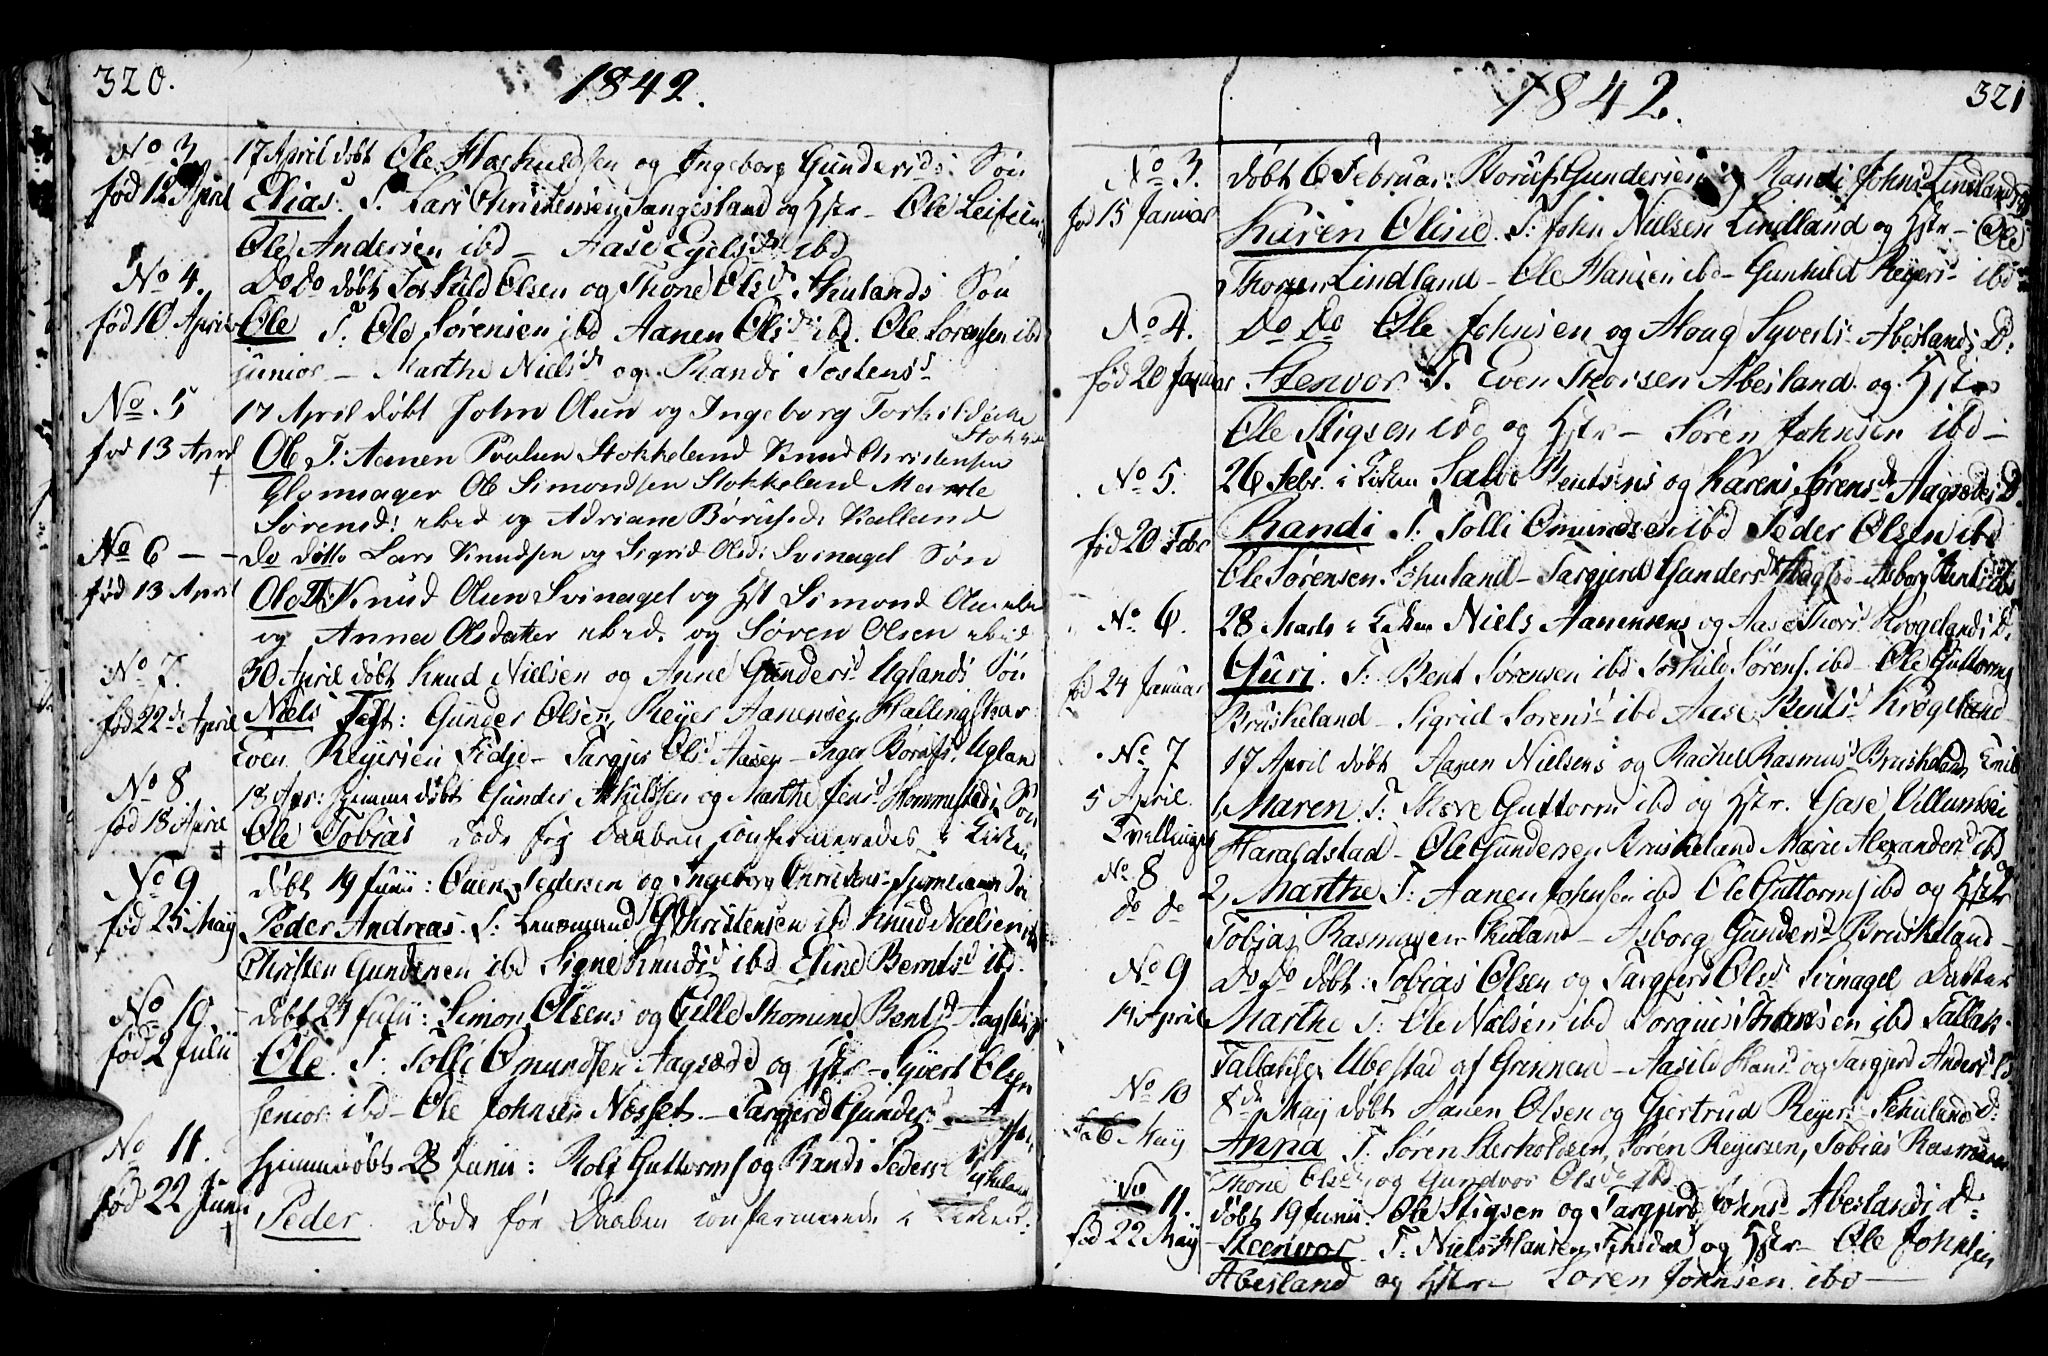 320.
1842.
No 3
fød 12 April
17 April døbt Ole og Ingeborg Gundersd: Søn
Elias. T. Lars Christensen Langeland og Hstr - Ole
Ole Andersen ibd - Aase Ejelsd ibd
No 4.
fød 10 April
Do Do døbt Torkild Olsen og Thone Olsd Skulands Søn
Ole T: Ole Sørensen ibd Aanen Olsd ibd. Ole Sørensen ibd
junior - Marthe Nielsd og Randi Tostensd
No. 5
fød 13 April
†
17 April døbt John Olsen og Ingeborg Torkildsd
Ole T: Aanen Poulsen Stokkeland Knud Christensen
Glamsager Ole Simondsen Stokkeland Marthe
Sørensd: ibid og Adriane Børufsd Kalland
No 6 -
fød 13 April
Do døbt Lars Knudsen og Sigrid Olsd: Svinagel Søn
Ole T. Knud Olsen Svinagel og Hst Simond Olsen
og Anna Olsdatter ibid. og Søren Olsen ibid
No 7.
fød 22de April
30 April døbt Knud Nielsen og Anne Gundersd Uglands Søn
Niels Test: Gunder Olsen, Reyer Aanensen Hallingskar
Even Reyersen Fidje - Targjer Olsd Aasen - Inger Børufsd Ugland
No 8
fød 18 April
†
18 Apr: hjemmedøbt Gunder og Marthe Jensd Hommestad Søn
Ole Tobias døde før Daaben confirmeredes i Kirken
No 9
fød 25 May
døbt 19 Junii: Ouen Pedersen og Ingeborg Christensd
Peder Andreas. T: Christensen ibd Knud Nielsen
Christen Gundersen ibd Signe Knudsd ibd Eline Berntsd ibd.
No 10
fød 2 Julii
døbt 24 Julii: Simon Olsens og Thomine Bentsd
Ole. T: Tolli Omundsen Aagsæde og Hstr - Syvert Olsen
senior ibd - Ole Johnsen Næsset. - Targjerd Gundersd
No 11.
fød 22 Junii
†
hjemmedøbt 28 Junii: Rolf Guttormsen og Randi Pedersd
Peder. døde før Daaben confirmerede i Kirken.
1842.
321
No 3.
fød 15 Januar
døbt 6 Februar: Børuf Gundersen og Randi Johnsd Lindland
Karen Oline. T: John Nielsen Lindland og Hstr - Ole
Lindland - Ole Hansen ibd - Gunhild Reyersd - ibd
No 4.
fød 20 Januar
Do Do Ole Johnsen og Aaoug Syvertsd Abeslands D:
Stenvor T. Even Abesland. og Hstr
Ole Stigsen ibd og Hstr - Søren Johnsen ibd -
No 5.
fød 20 Febr
26 Febr. i Kirken Salve Bentsens og Karens Sørensd Aagsædes D.
Randi T. Tolli Omundsen ibd Peder Olsen ibd
Ole Sørensen Skuland - Targjerd Gundersd - Asborg
No 6.
fød 24 Januar
28 Marts i Kirken Niels Aanensens og Aase Krøgelands D.
Guri. T: Bent Sørensen ibd Torkild Sørens. ibd - Ole Guttorms
Bruskeland - Sigrid Sørensd ibd Aase Bentsd Krøgeland
No 7
5 April.
Tvillinger
17 April døbt Aanen Nielsens og Rachel Rasmusd Bruskeland
1, Maren T: Guttorm ibd og Hstr.
Haraldstad - Ole Gundersen Bruskeland Marie Alexandersd ibd
No 8
do do
2, Marthe T: Aanen Johnsen ibd Ole Guttorms ibd og Hstr
Tobias Rasmusen Skuland - Asborg Gundersd Bruskeland -
No 9
14 April
Do Do døbt: Tobias Olsen og Targjerd Olsd Svinagel Datter
Marthe T: Ole Nielsen ibd Torgius Hansen ibd Tallak
Tallaksen Ubostad af - Aasild Hansd og Targjerd Andersd
No 10
6 May
8de May døbt Aanen Olsen og Gjertrud Reyersd Skulands D:
Anna T. Søren Sterkoldsen, Søren Reyersen, Tobias Rasmusen
Thone Olsd og Gundvor Olsd ibd
No 11.
fød 22 May
døbt 19 Junii: Ole Stigsen og Targjerd Johnsd Abeslands D:
Steenvor T: Niels Hansen og Hstr - Ole Johnsen
Abesland og Hstr - Søren Johnsen ibd -